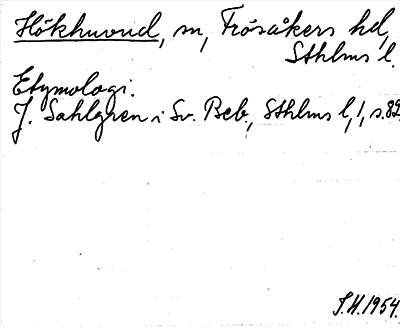 Hökhuvud, sn, Frösåkers hd,
Sthlms l.
Etymologi.
J. Sahlgren i Sv. Beb., Sthlms l, 1, s. 82
S.H. 1954.